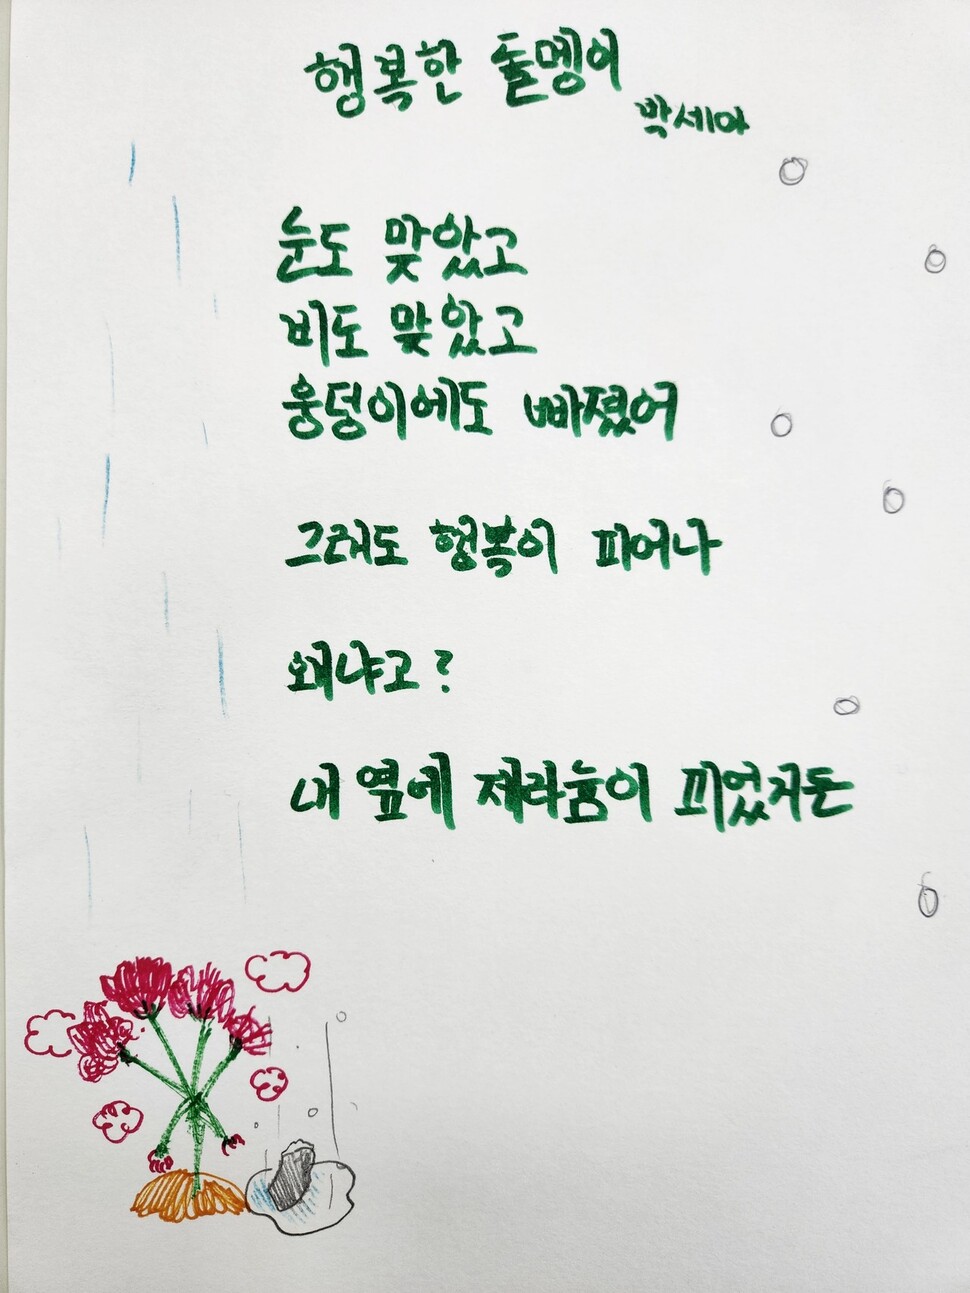 행복한 돌멩이
박세아
눈도 맞았고
비도 맞았고
웅덩이에도 빠졌어
그래도 행복이 피어나
왜냐고?
내 옆에 제라늄이 피었거든